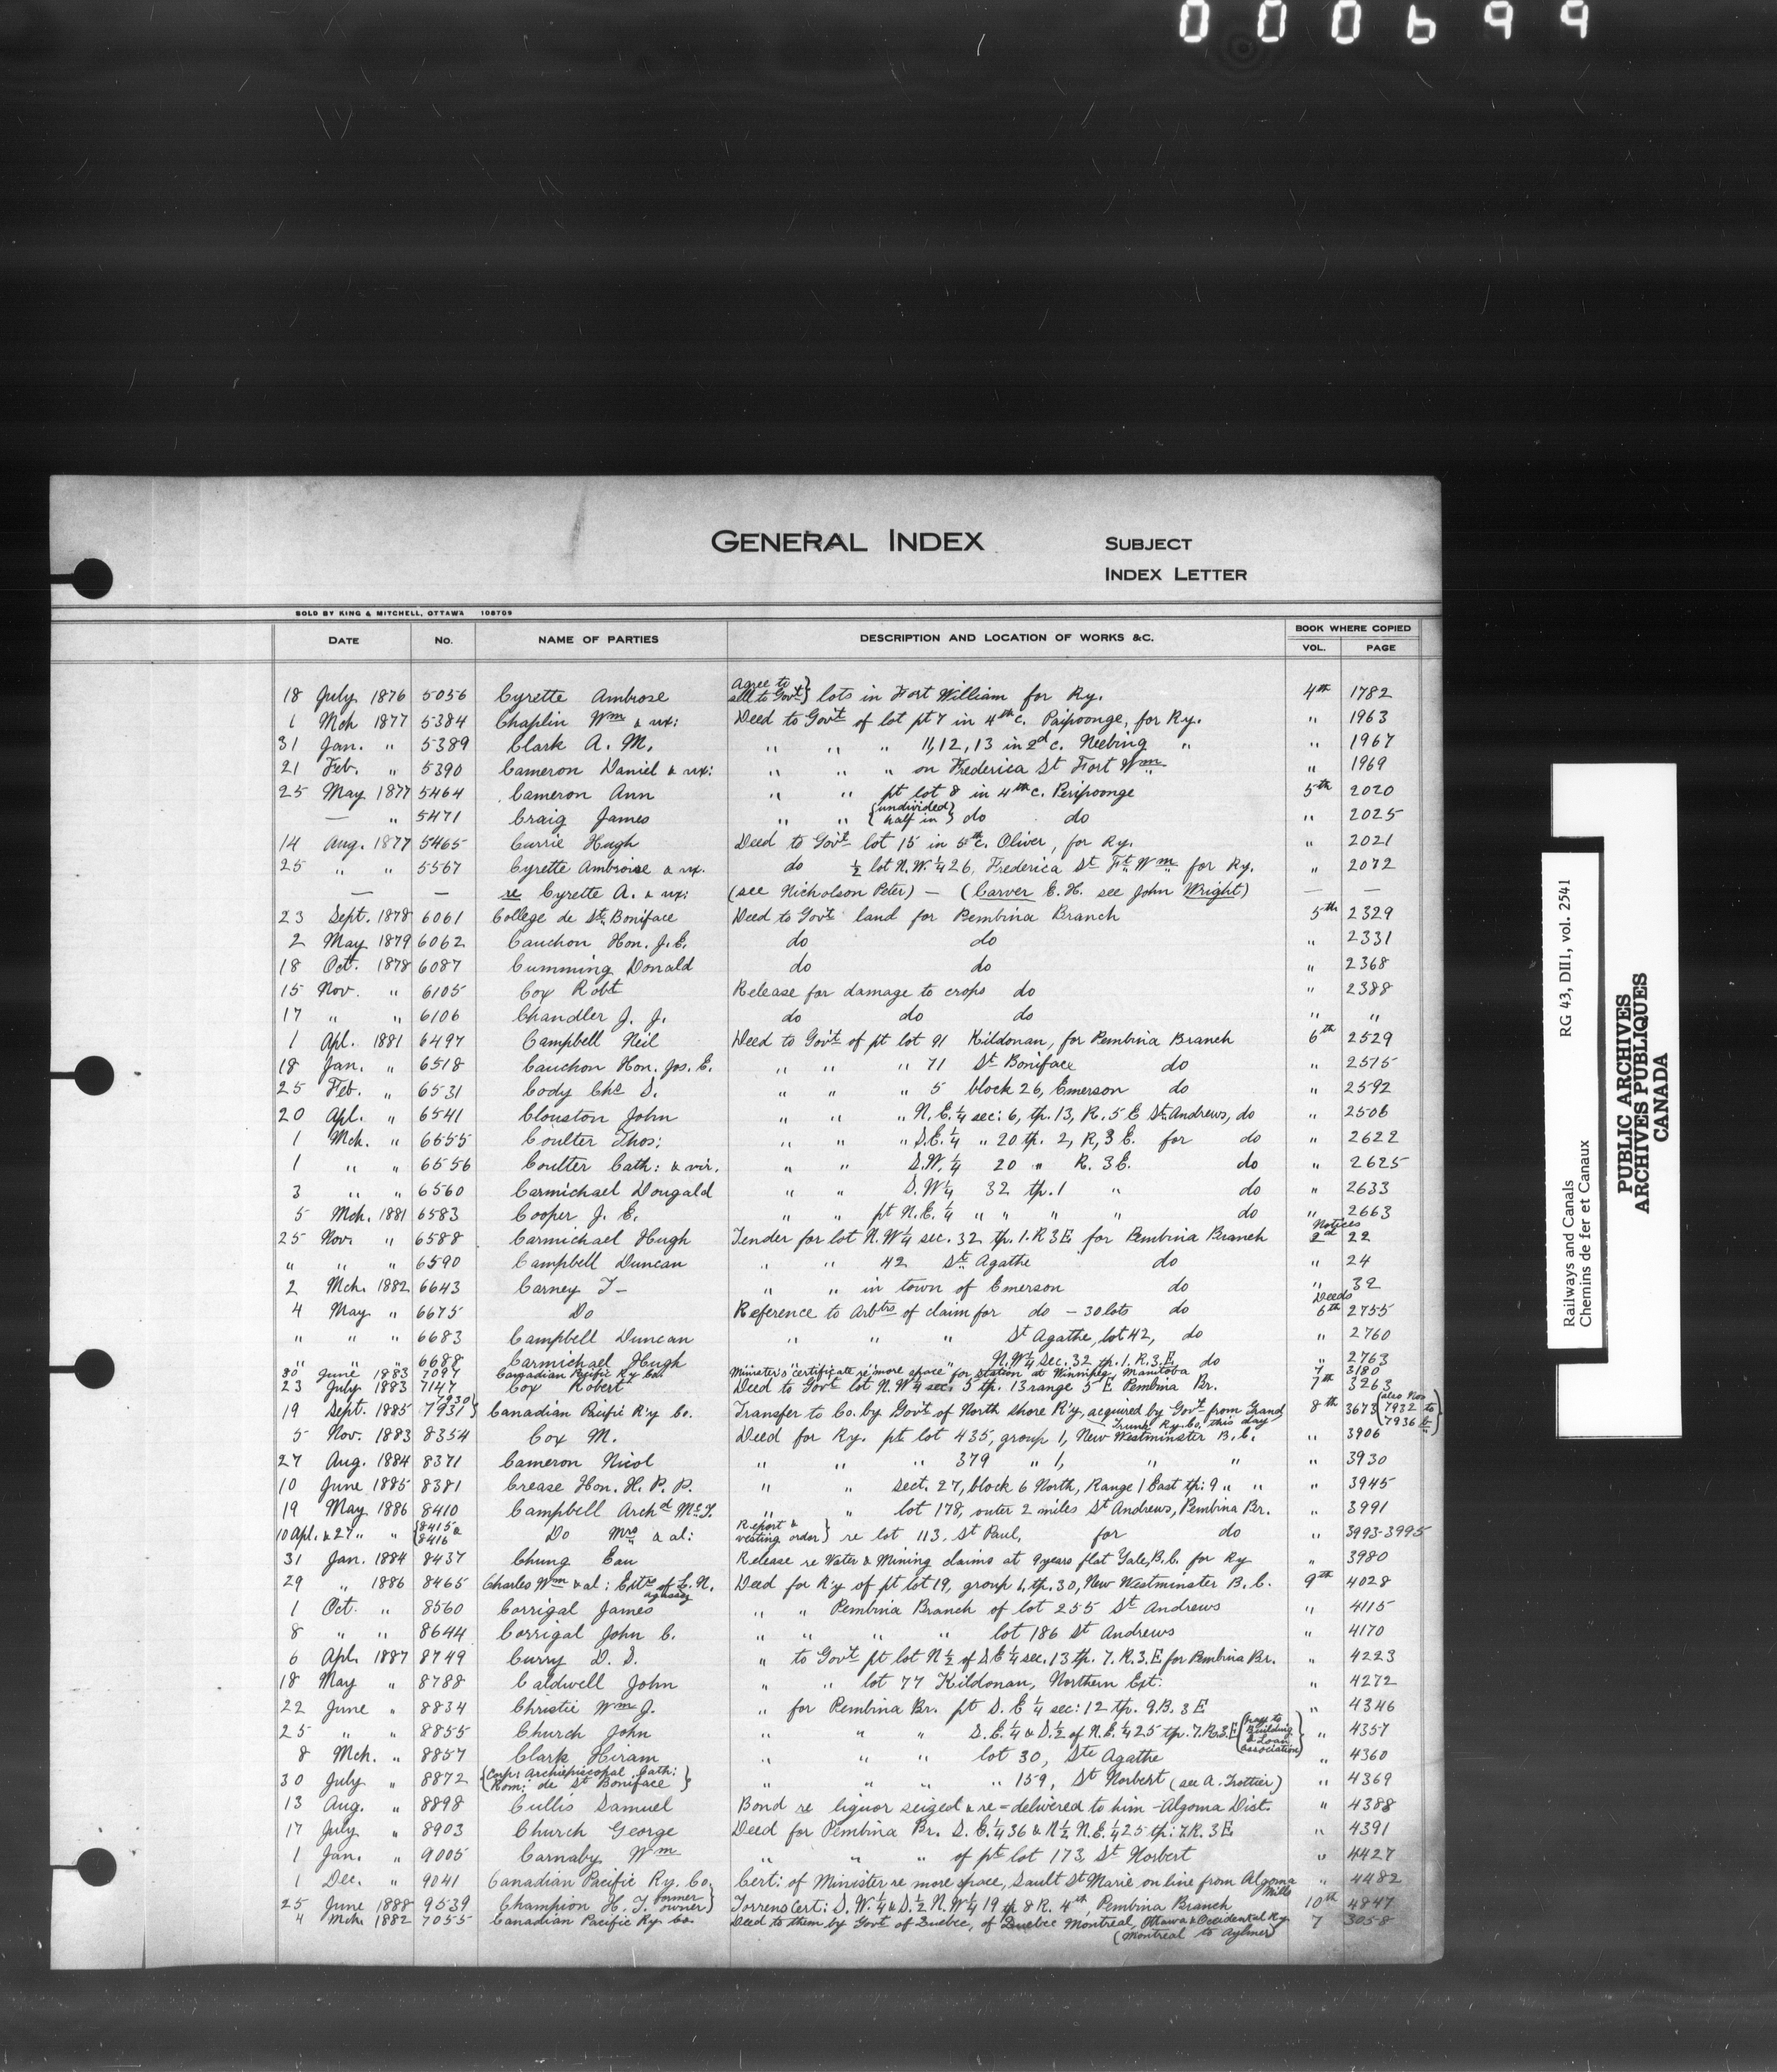 000699
GENERAL INDEX SUBJECT
INDEX LETTER
SOLD BY KING & MITCHELL, OTTAWA 108709
DATE No. NAME OF PARTIES DESCRIPTION AND LOCATION OF WORKS &C. BOOK WHERE COPIED
VOL. PAGE
18 July 1876 5056 Cyrette Ambrose Agree to sell to Govt } lots in Fort William for Ry. 4th 1782
1 Mch 1877 5384 Chaplin Wm & ux: Deed to Govt of lot pt 7 in 4th c. Paipoonge, for Ry. " 1963
31 Jan. " 5389 Clark A. M. " " " 11, 12, 13 in 2d c. Neebing " " 1967
21 Feb. " 5390 Cameron Daniel & ux: " " " on Frederica St Fort Wm " 1969
25 May 1877 5464 Cameron Ann " " pt lot 8 in 4th c. Peripoonge 5th 2020
— " 5471 Craig James " " { undivided half in } do do " 2025
14 Aug. 1877 5465 Currie Hugh Deed to Govt lot 15 in 5th c. Oliver, for Ry. " 2021
25 " " 5567 Cyrette Ambroise & ux. do ½ lot N.W.¼ 26, Frederica St Ft Wm for Ry. " 2072
— — re Cyrette A. & ux: (see Nicholson Peter) — (Carver C. H. see John Wright) — —
23 Sept. 1878 6061 College de St. Boniface Deed to Govt land for Pembina Branch 5th 2329
2 May 1879 6062 Cauchon Hon. J. E. do do " 2331
18 Oct. 1878 6087 Cumming Donald do do " 2368
15 Nov. " 6105 Cox Robt Release for damage to crops do " 2388
17 " " 6106 Chandler J. J. do do do " "
1 Apl. 1881 6497 Campbell Neil Deed to Govt of pt lot 91 Kildonan, for Pembina Branch 6th 2529
18 Jan. " 6518 Cauchon Hon. Jos. E. " " " 71 St Boniface do " 2575
25 Feb. " 6531 Cody Chs S. " " " 5 block 26, Emerson do " 2592
20 Apl. " 6541 Clouston John " " " N.E.¼ sec: 6, tp. 13, R. 5 E St. Andrews, do " 2506
1 Mch. " 6555 Coulter Thos: " " " S.E.¼ " 20 tp. 2, R, 3 E. for do " 2622
1 " " 6556 Coulter Cath: & vir. " " S.W.¼ 20 " R. 3 E. do " 2625
3 " " 6560 Carmichael Dougald " " S.W¼ 32 tp. 1 " do " 2633
5 Mch. 1881 6583 Cooper J. E. " " pt N.E.¼ " " " " do " 2663
25 Nov. " 6588 Carmichael Hugh Tender for lot N.W¼ sec. 32 tp. 1. R 3 E for Pembina Branch Notices 2d 22
" " " 6590 Campbell Duncan " " 42 St. Agathe do " 24
2 Mch. 1882 6643 Carney T— " " in town of Emerson do " 32
4 May " 6675 Do Reference to Arbtrs of claim for do — 30 lots do Deeds 6th 2755
" " " 6683 Campbell Duncan " " " St Agathe, lot 42, do " 2760
" " " 6688 Carmichael Hugh " " " N.W¼ Sec. 32 tp. 1. R. 3. E. do " 2763
30 June 1883 7097 Canadian Pacific Ry Co. Minister's certificate re "more space" for station at Winnipeg, Manitoba 7 3180
23 July 1883 7147 Cox Robert Deed to Govt lot N.W¼ sec. 5 tp. 13 range 5 E Pembina Br. 7th 3263
19 Sept. 1885 7930 7931 } Canadian Pacific R'y Co. Transfer to Co. by Govt of North Shore R'y, acquired by Govt from Grand Trunk Ry. Co. this day 8th 3673 { also Nos 7932 to 7936 }
5 Nov. 1883 8354 Cox M. Deed for Ry. pt lot 435, group 1, New Westminster B.C. " 3906
27 Aug. 1884 8371 Cameron Nicol " " " 379 " 1, " " " 3930
10 June 1885 8381 Crease Hon. H. P. P. " " sect. 27, block 6 North, Range 1 East tp: 9 " " " 3945
19 May 1886 8410 Campbell Archd McT. " " lot 178, outer 2 miles St Andrews, Pembina Br. " 3991
10 Apl. & 27 " " { 8415 & 8416 Do Mrs & al: Report & vesting order } re lot 113, St Paul, for do " 3993-3995
31 Jan. 1884 8437 Chung Eau Release re Water & Mining claims at 9 years flat Yale, B.C. for Ry " 3980
29 " 1886 8465 Charles Wm & al: Extrs of L. N. Agassiz Deed for R'y of pt lot 19, group 1, tp. 30, New Westminster B.C. 9th 4028
1 Oct. " 8560 Corrigal James " " Pembina Branch of lot 255 St Andrews " 4115
8 " " 8644 Corrigal John C. " " " " lot 186 St Andrews " 4170
6 Apl. 1887 8749 Curry D. S. " to Govt pt lot N½ of S E¼ sec. 13 tp. 7. R. 3. E for Pembina Br. " 4223
18 May " 8788 Caldwell John " " lot 77 Kildonan, Northern Ext: " 4272
22 June " 8834 Christie Wm J. " for Pembina Br. pt S. E¼ sec: 12 tp. 9. B. 3 E " 4346
25 " " 8855 Church John " " " S.E.¼ & S.½ of N.E.¼ 25 tp. 7. R. 3. E { pays to Building & Loan Association } " 4357
8 Mch. " 8857 Clark Hiram " " " lot 30, Ste Agathe " 4360
30 July " 8872 { Corp: Archiepiscopal Cath: Rom: de St Boniface } " " " " 159, St Norbert (see A. Trottier) " 4369
13 Aug. " 8898 Cullis Samuel Bond re liquor seized & re-delivered to him - Algoma Dist. " 4388
17 July " 8903 Church George Deed for Pembina Br. S. E.¼ 36 & N½ N.E.¼ 25 tp: 7. R. 3 E. " 4391
1 Jan. " 9005 Carnaby Wm " " " of pt lot 173, St Norbert " 4427
1 Dec. " 9041 Canadian Pacific Ry. Co. Cert: of Minister re more space, Sault St Marie on line from Algoma Mills " 4482
25 June 1888 9539 Champion H. T. former owner } Torrens Cert: S. W.¼ & S.½ N. W¼ 19 tp 8 R. 4th, Pembina Branch 10th 4847
4 Mch. 1882 7055 Canadian Pacific Ry. Co. Deed to them by Govt of Quebec, of Quebec Montreal, Ottawa & Occidental Ry. 7 3058
(Montreal to Aylmer)
Railways and Canals RG 43, DII1, vol. 2541
Chemins de fer et Canaux
PUBLIC ARCHIVES
ARCHIVES PUBLIQUES
CANADA